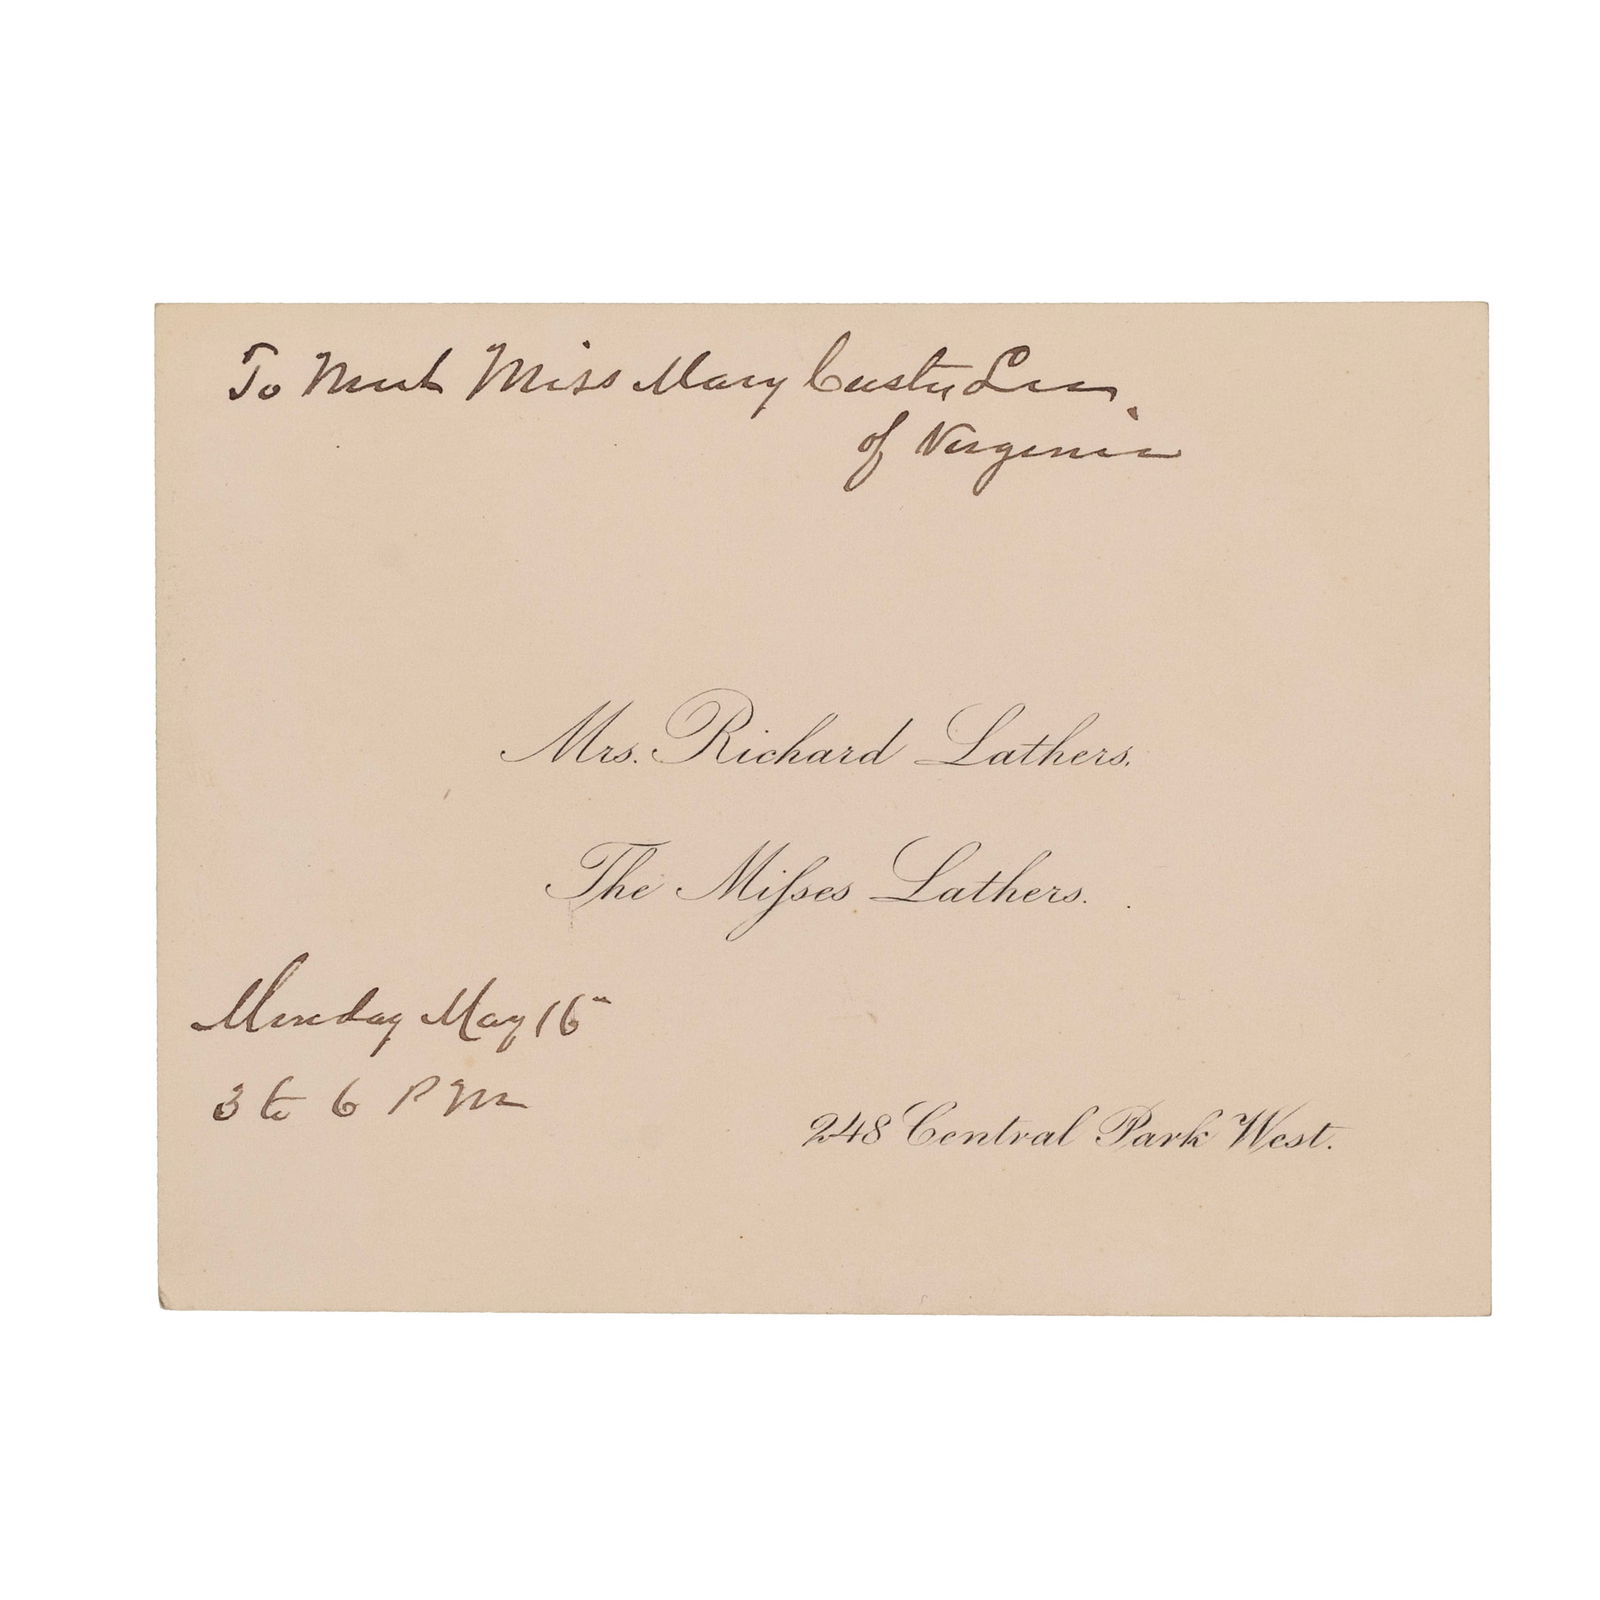 To Meet Miss Mary Custis Lee
of Virginia
Mrs. Richard Lathers.
The Miſses Lathers.
Monday May 16
3 to 6 P M
248 Central Park West.